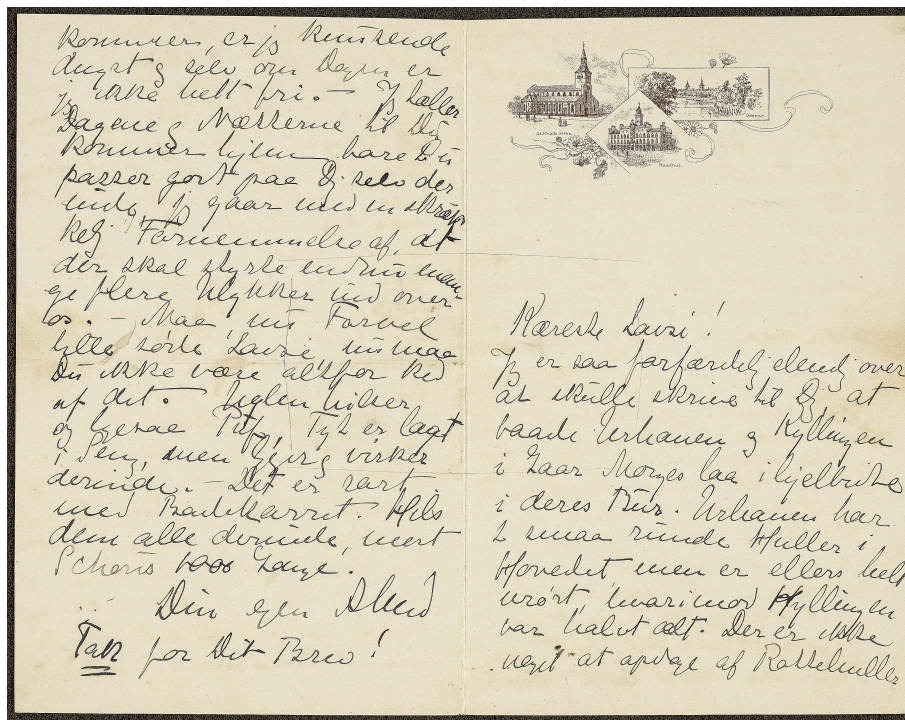 kommer, er jeg
Angst og selv om Dagen er
jeg ikke helt fri. – Jeg tæller
Dagene og Nætterne til Du
kommer hjem, bare Du
passer godt paa Dig selv der
inde, jeg gaar med en skræk-
kelig Fornemmelse af, at
der skal styrte endnu man-
ge flere Ulykker ind over
os. – Naa, nu Farvel
lille søde Lavsi, nu maa
Du ikke være altfor ked
af det. Uglen hilser
og Puf, Tyk er lagt
i Seng, men virker
derinde. – Det er rart
med Badekarret. Hils
dem alle derinde, mest
1000 Gange.
Din egen
Tak for Dit Brev!
St. Knuds Kirke.
Odense.
Raadhuset.
Kæreste Lavsi!
Jeg er saa forfærdelig elendig over
at skulle skrive til Dig at
baade Urhanen og Kyllingen
i Gaar Morges laa ihjelbidte
i deres Bur. Urhanen har
2 smaa runde Huller i
Hovedet, men er ellers helt
urørt, hvorimod Kyllingen
var halvt ædt. Der er ikke
noget at opdage af Rottehuller